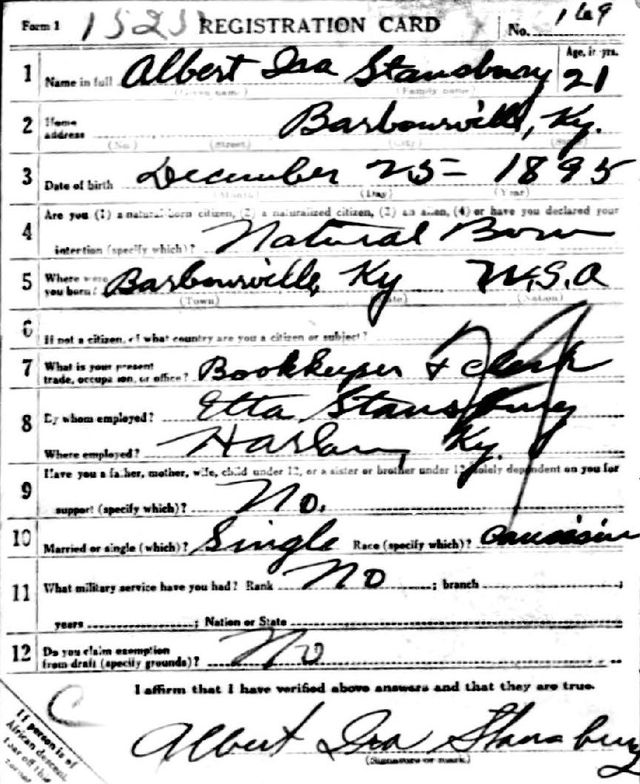 Form 1 1523 REGISTRATION CARD No. 169
1 Name in full Albert Ira Stansbury Age, in yrs. 21
(Given name) (Family name)
2 Home address Barbourville, Ky.
(No.) (Street) (City) (State)
3 Date of birth December 25 = 1895
(Month) (Day) (Year)
4 Are you (1) a natural-born citizen, (2) a naturalized citizen, (3) an alien, (4) or have you declared your
intention (specify which)? Natural Born
5 Where were you born? Barbourville, Ky U.S.A
(Town) (State) (Nation)
6 If not a citizen, of what country are you a citizen or subject?
7 What is your present trade, occupation, or office? Bookkeeper & clerk
8 By whom employed? Etta Stansbury
Where employed? Harlan, Ky.
9 Have you a father, mother, wife, child under 12, or a sister or brother under 12 solely dependent on you for
support (specify which)? No.
10 Married or single (which)? Single Race (specify which)? Caucasian
11 What military service have you had? Rank No ; branch ;
years ; Nation or State
12 Do you claim exemption from draft (specify grounds)? No
I affirm that I have verified above answers and that they are true.
C
Albert Ira Stansbury
(Signature or mark)
If person is of
African descent,
tear off this
corner